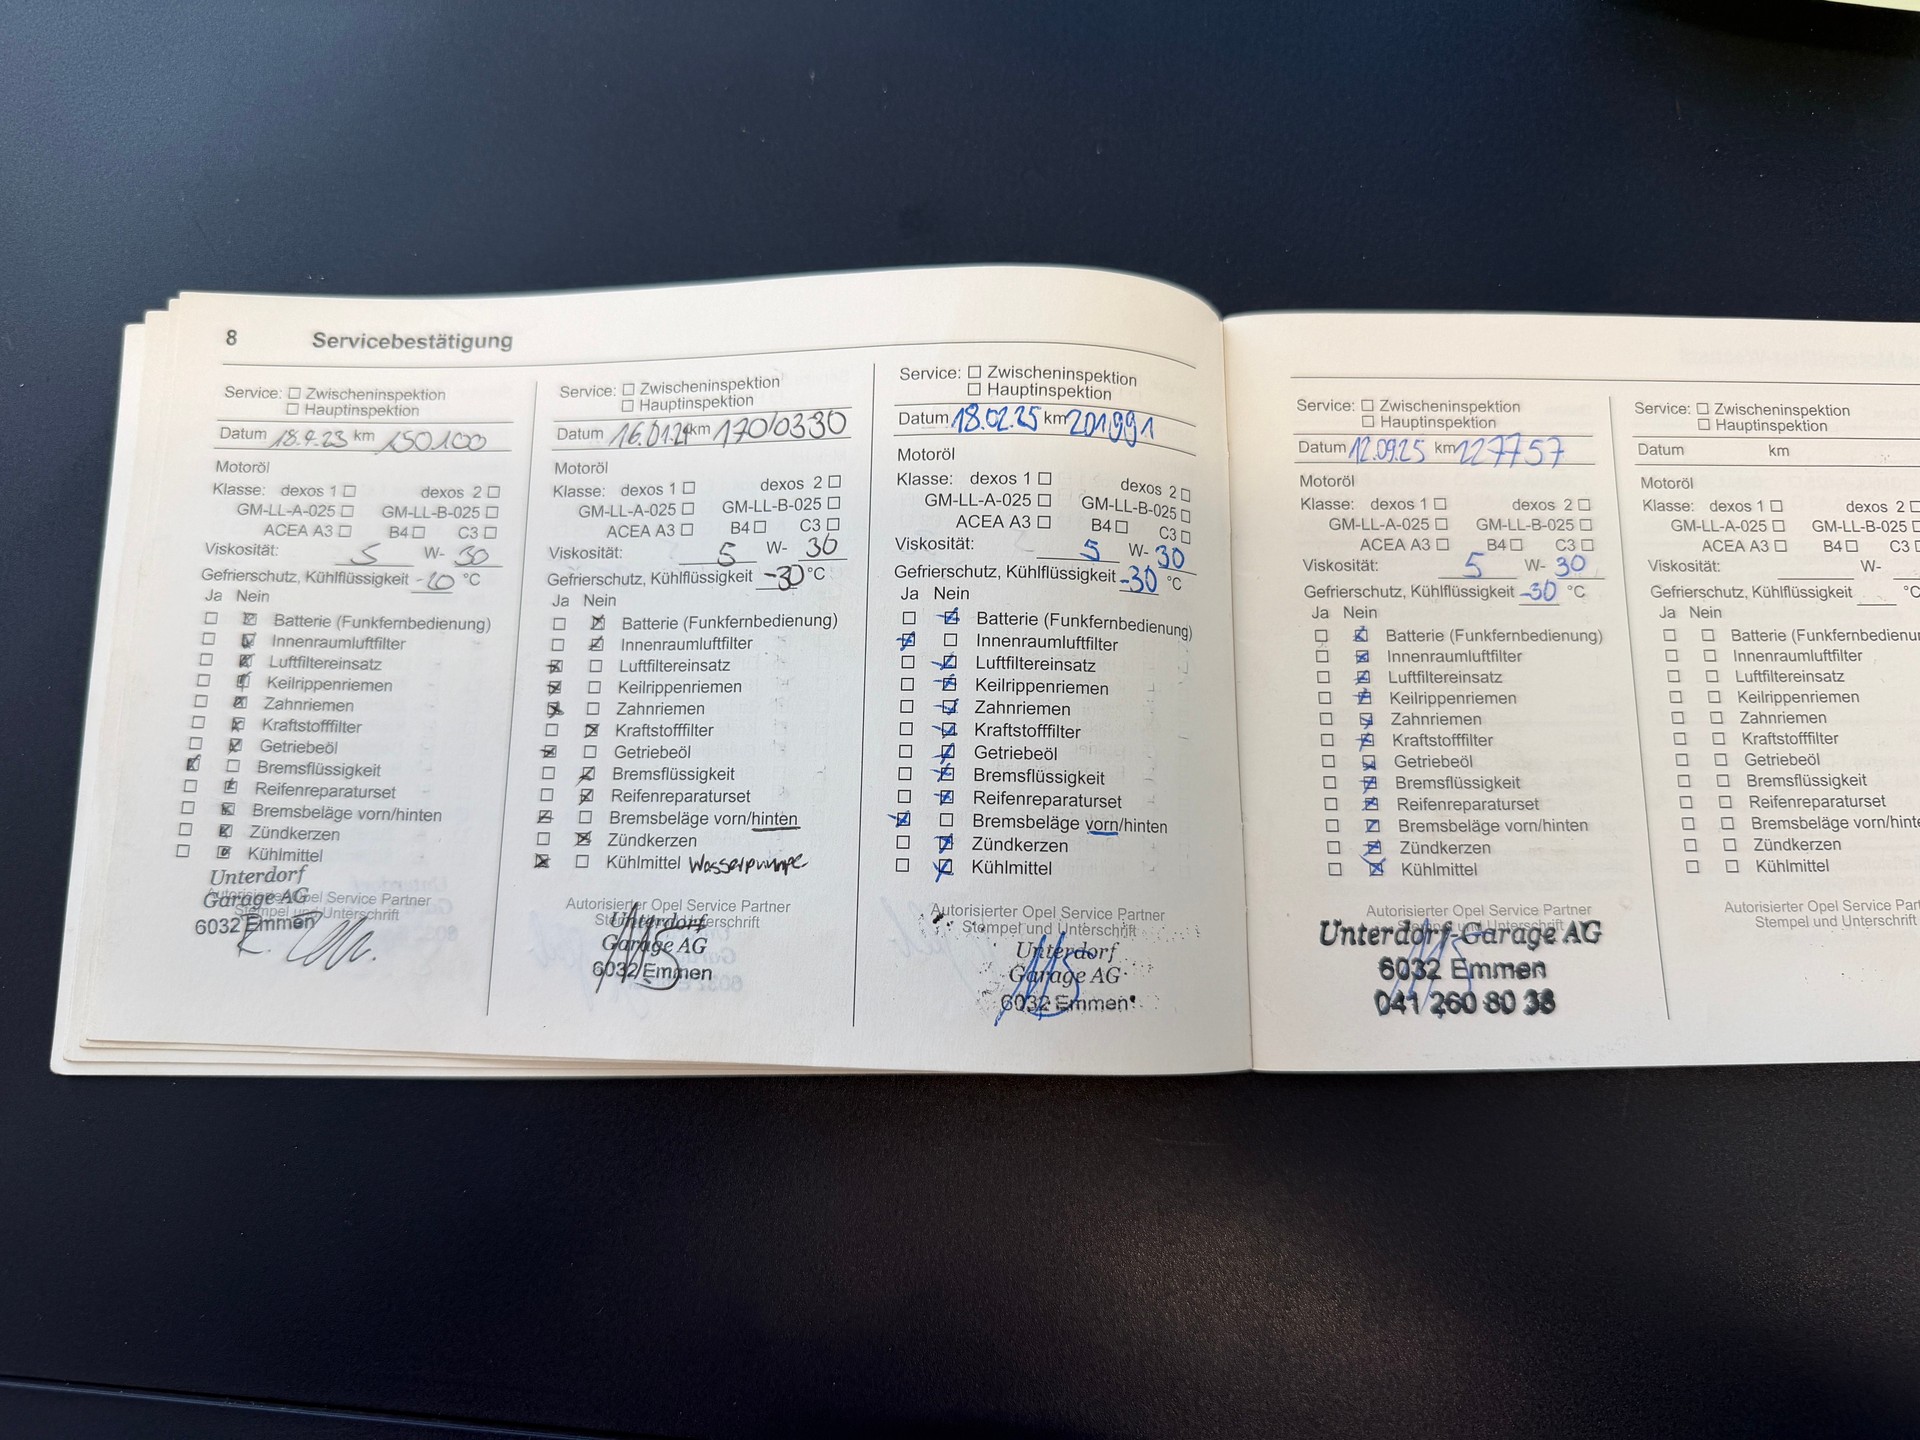 8 Servicebestätigung
Service: ☐ Zwischeninspektion
☐ Hauptinspektion
Datum 18.9.23 km 150100
Motoröl
Klasse: dexos 1 ☐ dexos 2 ☐
GM-LL-A-025 ☐ GM-LL-B-025 ☐
ACEA A3 ☐ B4 ☐ C3 ☐
Viskosität: 5 W- 30
Gefrierschutz, Kühlflüssigkeit -20 °C
Ja Nein
☐ ☒ Batterie (Funkfernbedienung)
☐ ☒ Innenraumluftfilter
☐ ☒ Luftfiltereinsatz
☐ ☒ Keilrippenriemen
☐ ☒ Zahnriemen
☐ ☒ Kraftstofffilter
☐ ☒ Getriebeöl
☒ ☐ Bremsflüssigkeit
☐ ☒ Reifenreparaturset
☐ ☒ Bremsbeläge vorn/hinten
☐ ☒ Zündkerzen
☐ ☒ Kühlmittel
Autorisierter Opel Service Partner
Stempel und Unterschrift
Unterdorf
Garage AG
6032 Emmen
Service: ☐ Zwischeninspektion
☐ Hauptinspektion
Datum 16.01.24 km 170/0330
Motoröl
Klasse: dexos 1 ☐ dexos 2 ☐
GM-LL-A-025 ☐ GM-LL-B-025 ☐
ACEA A3 ☐ B4 ☐ C3 ☐
Viskosität: 5 W- 30
Gefrierschutz, Kühlflüssigkeit -30 °C
Ja Nein
☐ ☒ Batterie (Funkfernbedienung)
☐ ☒ Innenraumluftfilter
☒ ☐ Luftfiltereinsatz
☒ ☐ Keilrippenriemen
☒ ☐ Zahnriemen
☐ ☒ Kraftstofffilter
☒ ☐ Getriebeöl
☐ ☒ Bremsflüssigkeit
☐ ☒ Reifenreparaturset
☒ ☐ Bremsbeläge vorn/hinten
☐ ☒ Zündkerzen
☒ ☐ Kühlmittel Wasserpumpe
Autorisierter Opel Service Partner
Stempel und Unterschrift
Unterdorf
Garage AG
6032 Emmen
Service: ☐ Zwischeninspektion
☐ Hauptinspektion
Datum 18.02.25 km 201991
Motoröl
Klasse: dexos 1 ☐ dexos 2 ☐
GM-LL-A-025 ☐ GM-LL-B-025 ☐
ACEA A3 ☐ B4 ☐ C3 ☐
Viskosität: 5 W- 30
Gefrierschutz, Kühlflüssigkeit -30 °C
Ja Nein
☐ ☒ Batterie (Funkfernbedienung)
☒ ☐ Innenraumluftfilter
☐ ☒ Luftfiltereinsatz
☐ ☒ Keilrippenriemen
☐ ☒ Zahnriemen
☐ ☒ Kraftstofffilter
☐ ☒ Getriebeöl
☐ ☒ Bremsflüssigkeit
☐ ☒ Reifenreparaturset
☒ ☐ Bremsbeläge vorn/hinten
☐ ☒ Zündkerzen
☐ ☒ Kühlmittel
Autorisierter Opel Service Partner
Stempel und Unterschrift
Unterdorf
Garage AG
6032 Emmen
Service: ☐ Zwischeninspektion
☐ Hauptinspektion
Datum 12.09.25 km 227757
Motoröl
Klasse: dexos 1 ☐ dexos 2 ☐
GM-LL-A-025 ☐ GM-LL-B-025 ☐
ACEA A3 ☐ B4 ☐ C3 ☐
Viskosität: 5 W- 30
Gefrierschutz, Kühlflüssigkeit -30 °C
Ja Nein
☐ ☒ Batterie (Funkfernbedienung)
☐ ☒ Innenraumluftfilter
☐ ☒ Luftfiltereinsatz
☐ ☒ Keilrippenriemen
☐ ☒ Zahnriemen
☐ ☒ Kraftstofffilter
☐ ☒ Getriebeöl
☐ ☒ Bremsflüssigkeit
☐ ☒ Reifenreparaturset
☐ ☒ Bremsbeläge vorn/hinten
☐ ☒ Zündkerzen
☐ ☒ Kühlmittel
Autorisierter Opel Service Partner
Stempel und Unterschrift
Unterdorf-Garage AG
6032 Emmen
041 260 80 38
Service: ☐ Zwischeninspektion
☐ Hauptinspektion
Datum km
Motoröl
Klasse: dexos 1 ☐ dexos 2 ☐
GM-LL-A-025 ☐ GM-LL-B-025
ACEA A3 ☐ B4 ☐ C3
Viskosität: W-
Gefrierschutz, Kühlflüssigkeit °C
Ja Nein
☐ ☐ Batterie (Funkfernbedienu
☐ ☐ Innenraumluftfilter
☐ ☐ Luftfiltereinsatz
☐ ☐ Keilrippenriemen
☐ ☐ Zahnriemen
☐ ☐ Kraftstofffilter
☐ ☐ Getriebeöl
☐ ☐ Bremsflüssigkeit
☐ ☐ Reifenreparaturset
☐ ☐ Bremsbeläge vorn/hinte
☐ ☐ Zündkerzen
☐ ☐ Kühlmittel
Autorisierter Opel Service Par
Stempel und Unterschrift